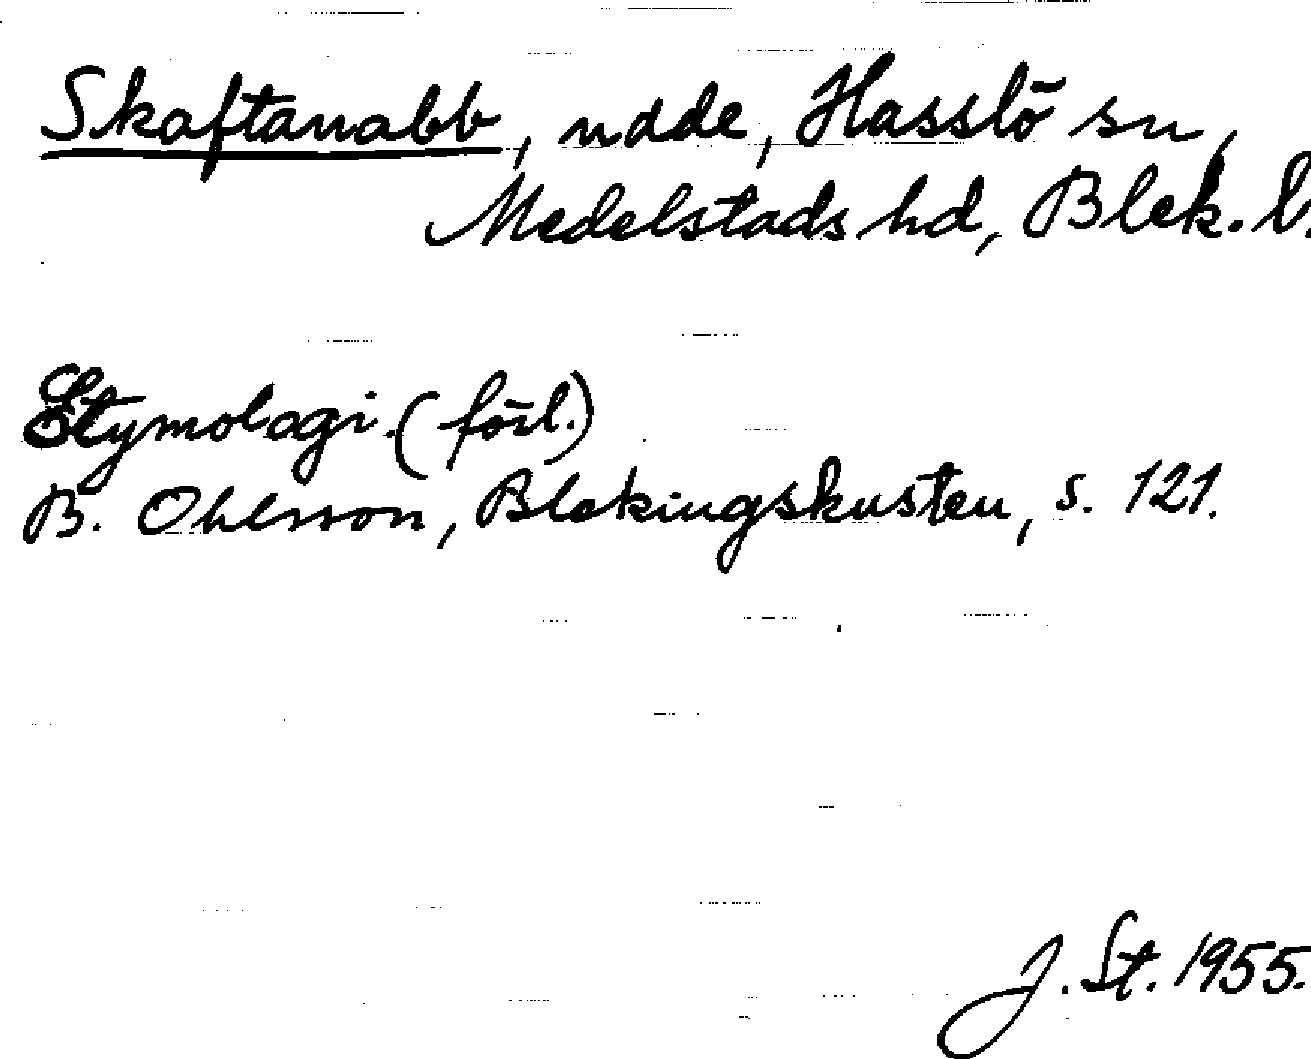 Skaftanabb, udde, Hasslö sn,
Medelstads hd, Blek. l.
Etymologi. (förl.)
B. Ohlsson, Blekingskusten, s. 121.
J. St. 1955.